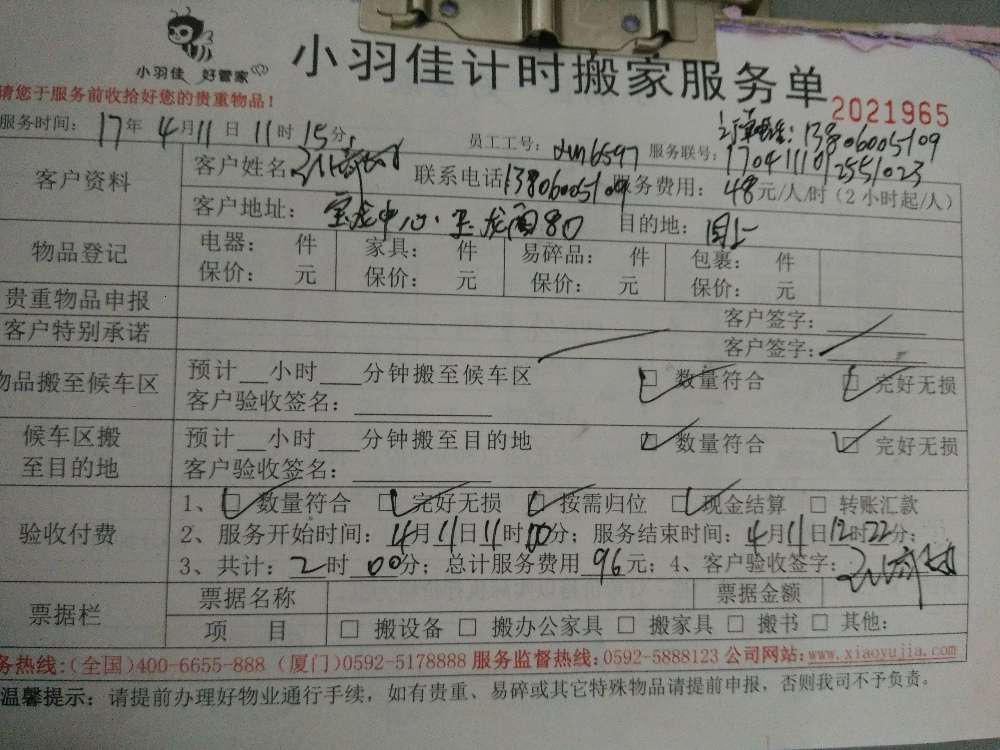 小羽佳 好管家
小羽佳计时搬家服务单
2021965
请您于服务前收拾好您的贵重物品！
服务时间： 17年 4月 11日 11时 15分；
员工工号： 服务联号： 13806005109
客户资料
客户姓名
联系电话 13806005109
服务费用： 48元/人/时（2小时起/人）
客户地址： 宝龙中心
目的地：
物品登记
电器： 件 家具： 件 易碎品： 件 包裹： 件
保价： 元 保价： 元 保价： 元 保价： 元
贵重物品申报
客户签字：
客户特别承诺
客户签字：
物品搬至候车区
预计 小时 分钟搬至候车区 □ 数量符合 □ 完好无损
客户验收签名：
候车区搬
至目的地
预计 小时 分钟搬至目的地 □ 数量符合 □ 完好无损
客户验收签名：
验收付费
1、□ 数量符合 □ 完好无损 □ 按需归位 □ 现金结算 □ 转账汇款
2、服务开始时间： 4月 11日 11时 00分；服务结束时间： 4月 11日 12时 22分；
3、共计： 2时 00分；总计服务费用 96元；4、客户验收签字：
票据栏
票据名称 票据金额
项 目 □ 搬设备 □ 搬办公家具 □ 搬家具 □ 搬书 □ 其他：
务热线：(全国)400-6655-888 (厦门)0592-5178888 服务监督热线：0592-5888123 公司网站：www.xiaoyujia.com
温馨提示：请提前办理好物业通行手续，如有贵重、易碎或其它特殊物品请提前申报，否则我司不予负责。